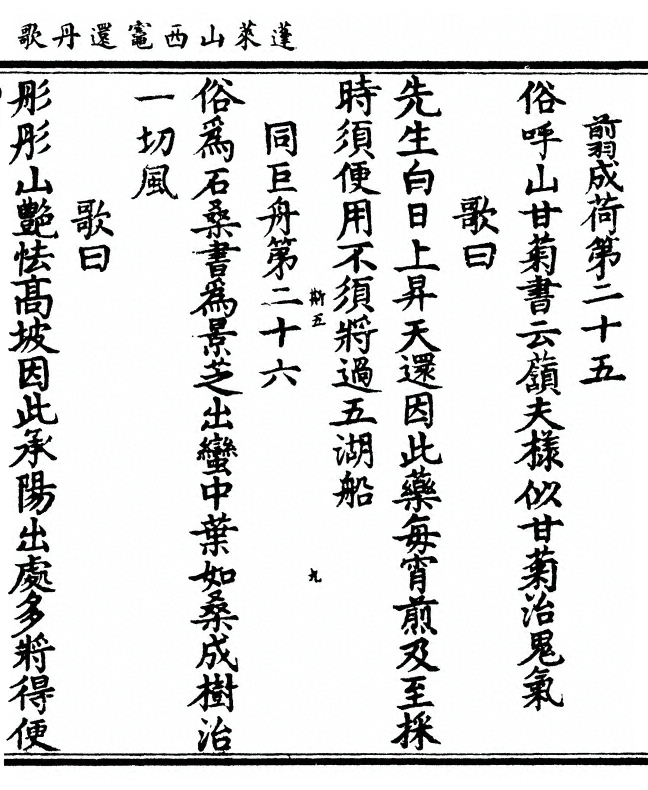 蓬萊山西竈還丹歌
翦成荷第二十五
俗呼山甘菊書云夫樣似甘菊治鬼氣
歌曰
先生白日上昇天還因此藥每宵煎及至採
時須便用不須將過五湖船
斯五
九
同巨舟第二十六
俗爲石桑書爲景芝出蠻中葉如桑成樹治
一切風
歌曰
彤彤山艷怯高坡因此承陽出處多將得便